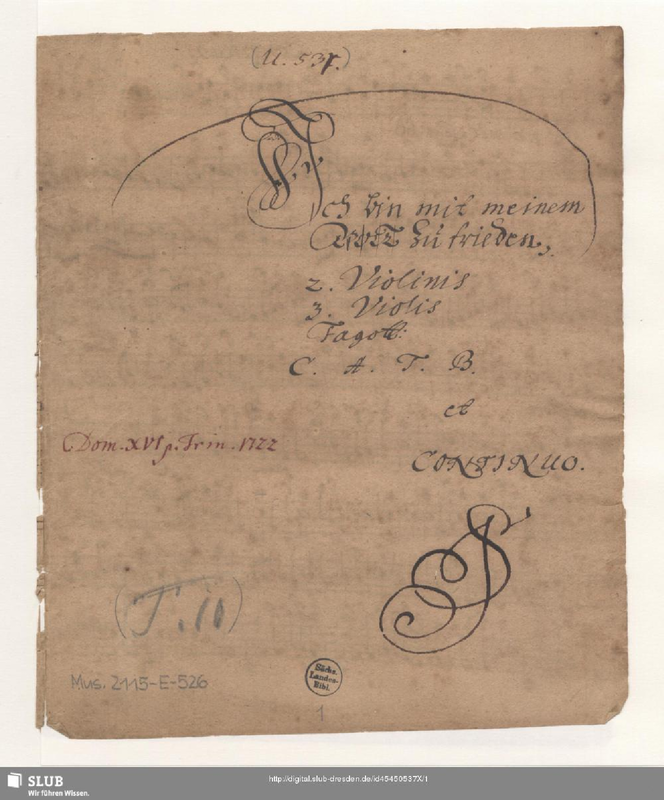 (U. 537.)
Ich bin mit meinem
GOTT zu frieden,
2. Violinis
3. Violis
Fagott:
C. A. T. B.
et
CONTINUO.
Dom. XVI p. Trin. 1722
(T. 10)
Mus. 2115-E-526
Sächs.
Landes-
Bibl.
1
SLUB
Wir führen Wissen.
http://digital.slub-dresden.de/id45450537X/1